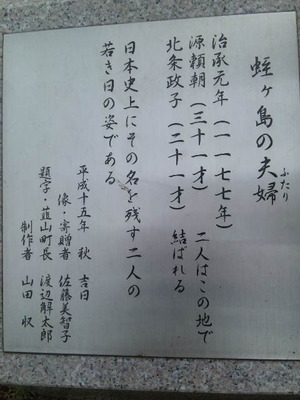 蛭ヶ島の夫婦
ふたり
治承元年（一一七七年）
源頼朝（三十一才）
北条政子（二十一才）
二人はこの地で
結ばれる
日本史上にその名を残す二人の
若き日の姿である
平成十五年 秋 吉日
像・寄贈者 佐藤美智子
題字・韮山町長 渡辺解太郎
制作者 山田 収